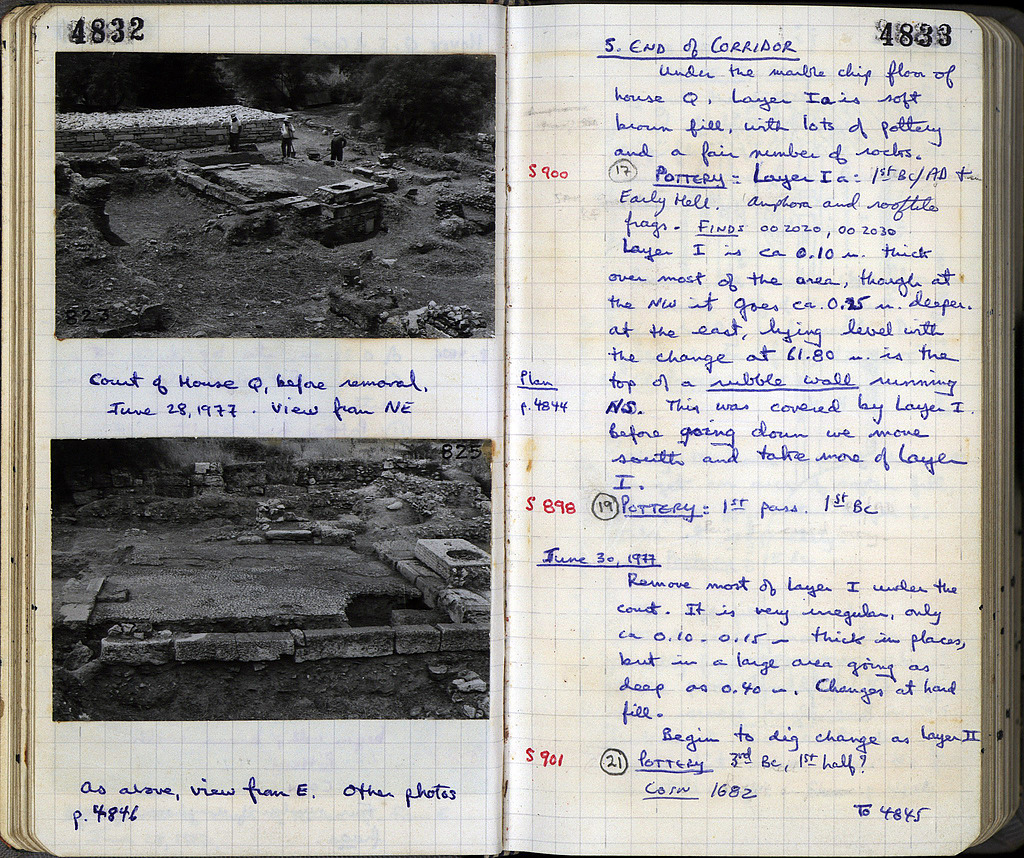 4832
823
Court of House Q, before removal,
June 28, 1977. View from NE
825
As above, view from E. Other photos
p. 4846
4833
S. END OF CORRIDOR
Under the marble chip floor of
house Q, Layer Ia is soft
brown fill, with lots of pottery
and a fair number of rocks.
S 900
17 POTTERY: Layer Ia: 1st BC/AD
Early Hell. Amphora and rooftile
frags. FINDS 00 2020, 00 2030
Layer I is ca 0.10 m. thick
over most of the area, though at
the NW it goes ca. 0.25 m. deeper.
At the east, lying level with
the change at 61.80 m. is the
Plan
p. 4844
top of a rubble wall running
NS. This was covered by Layer I.
Before going down we move
south and take more of Layer
I.
S 898
19 POTTERY: 1st pass. 1st BC
June 30, 1977
Remove most of Layer I under the
court. It is very irregular, only
ca 0.10 - 0.15 m thick in places,
but in a large area going as
deep as 0.40 m. Changes at hard
fill.
Begin to dig change as Layer II
S 901
21 POTTERY 3rd BC, 1st half?
COIN 1682
To 4845